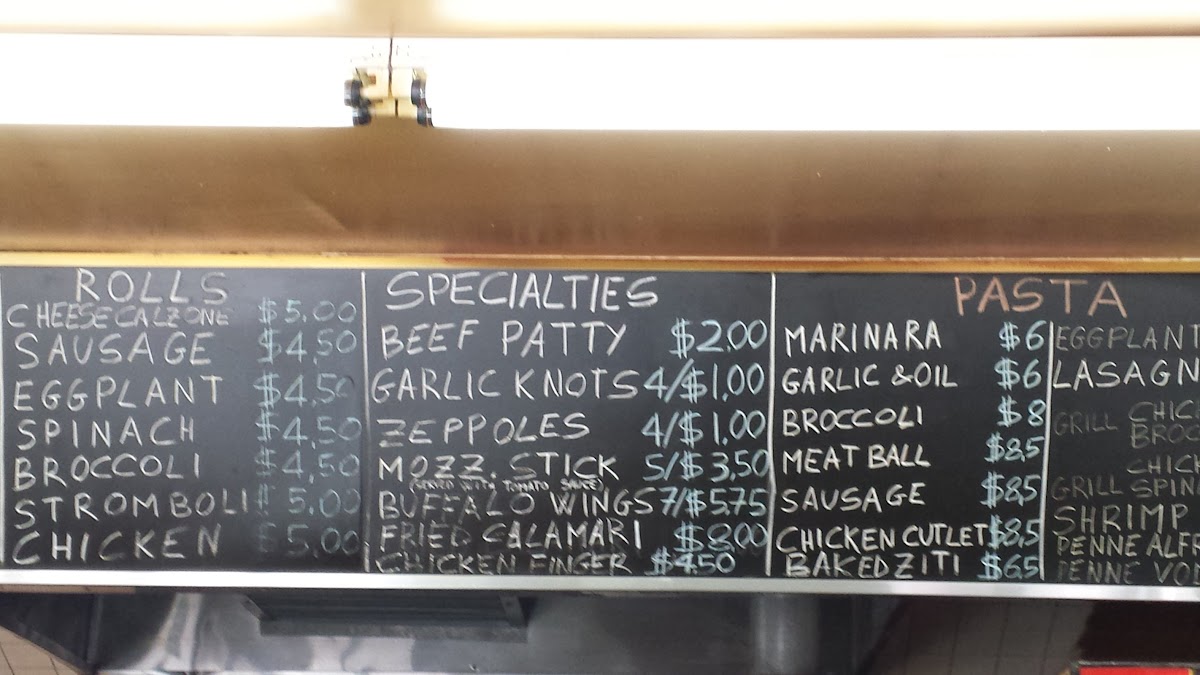 ROLLS
CHEESE CALZONE $5.00
SAUSAGE $4.50
EGGPLANT $4.50
SPINACH $4.50
BROCCOLI $4.50
STROMBOLI $5.00
CHICKEN $5.00
SPECIALTIES
BEEF PATTY $2.00
GARLIC KNOTS 4/$1.00
ZEPPOLES 4/$1.00
MOZZ. STICK 5/$3.50
(SERVED WITH TOMATO SAUCE)
BUFFALO WINGS 7/$5.75
FRIED CALAMARI $8.00
CHICKEN FINGER $4.50
PASTA
MARINARA $6
GARLIC & OIL $6
BROCCOLI $8
MEAT BALL $8.5
SAUSAGE $8.5
CHICKEN CUTLET $8.5
BAKED ZITI $6.5
EGGPLANT
LASAGN
GRILL CHIC
BROC
CHICK
GRILL SPINA
SHRIMP
PENNE ALFR
PENNE VO